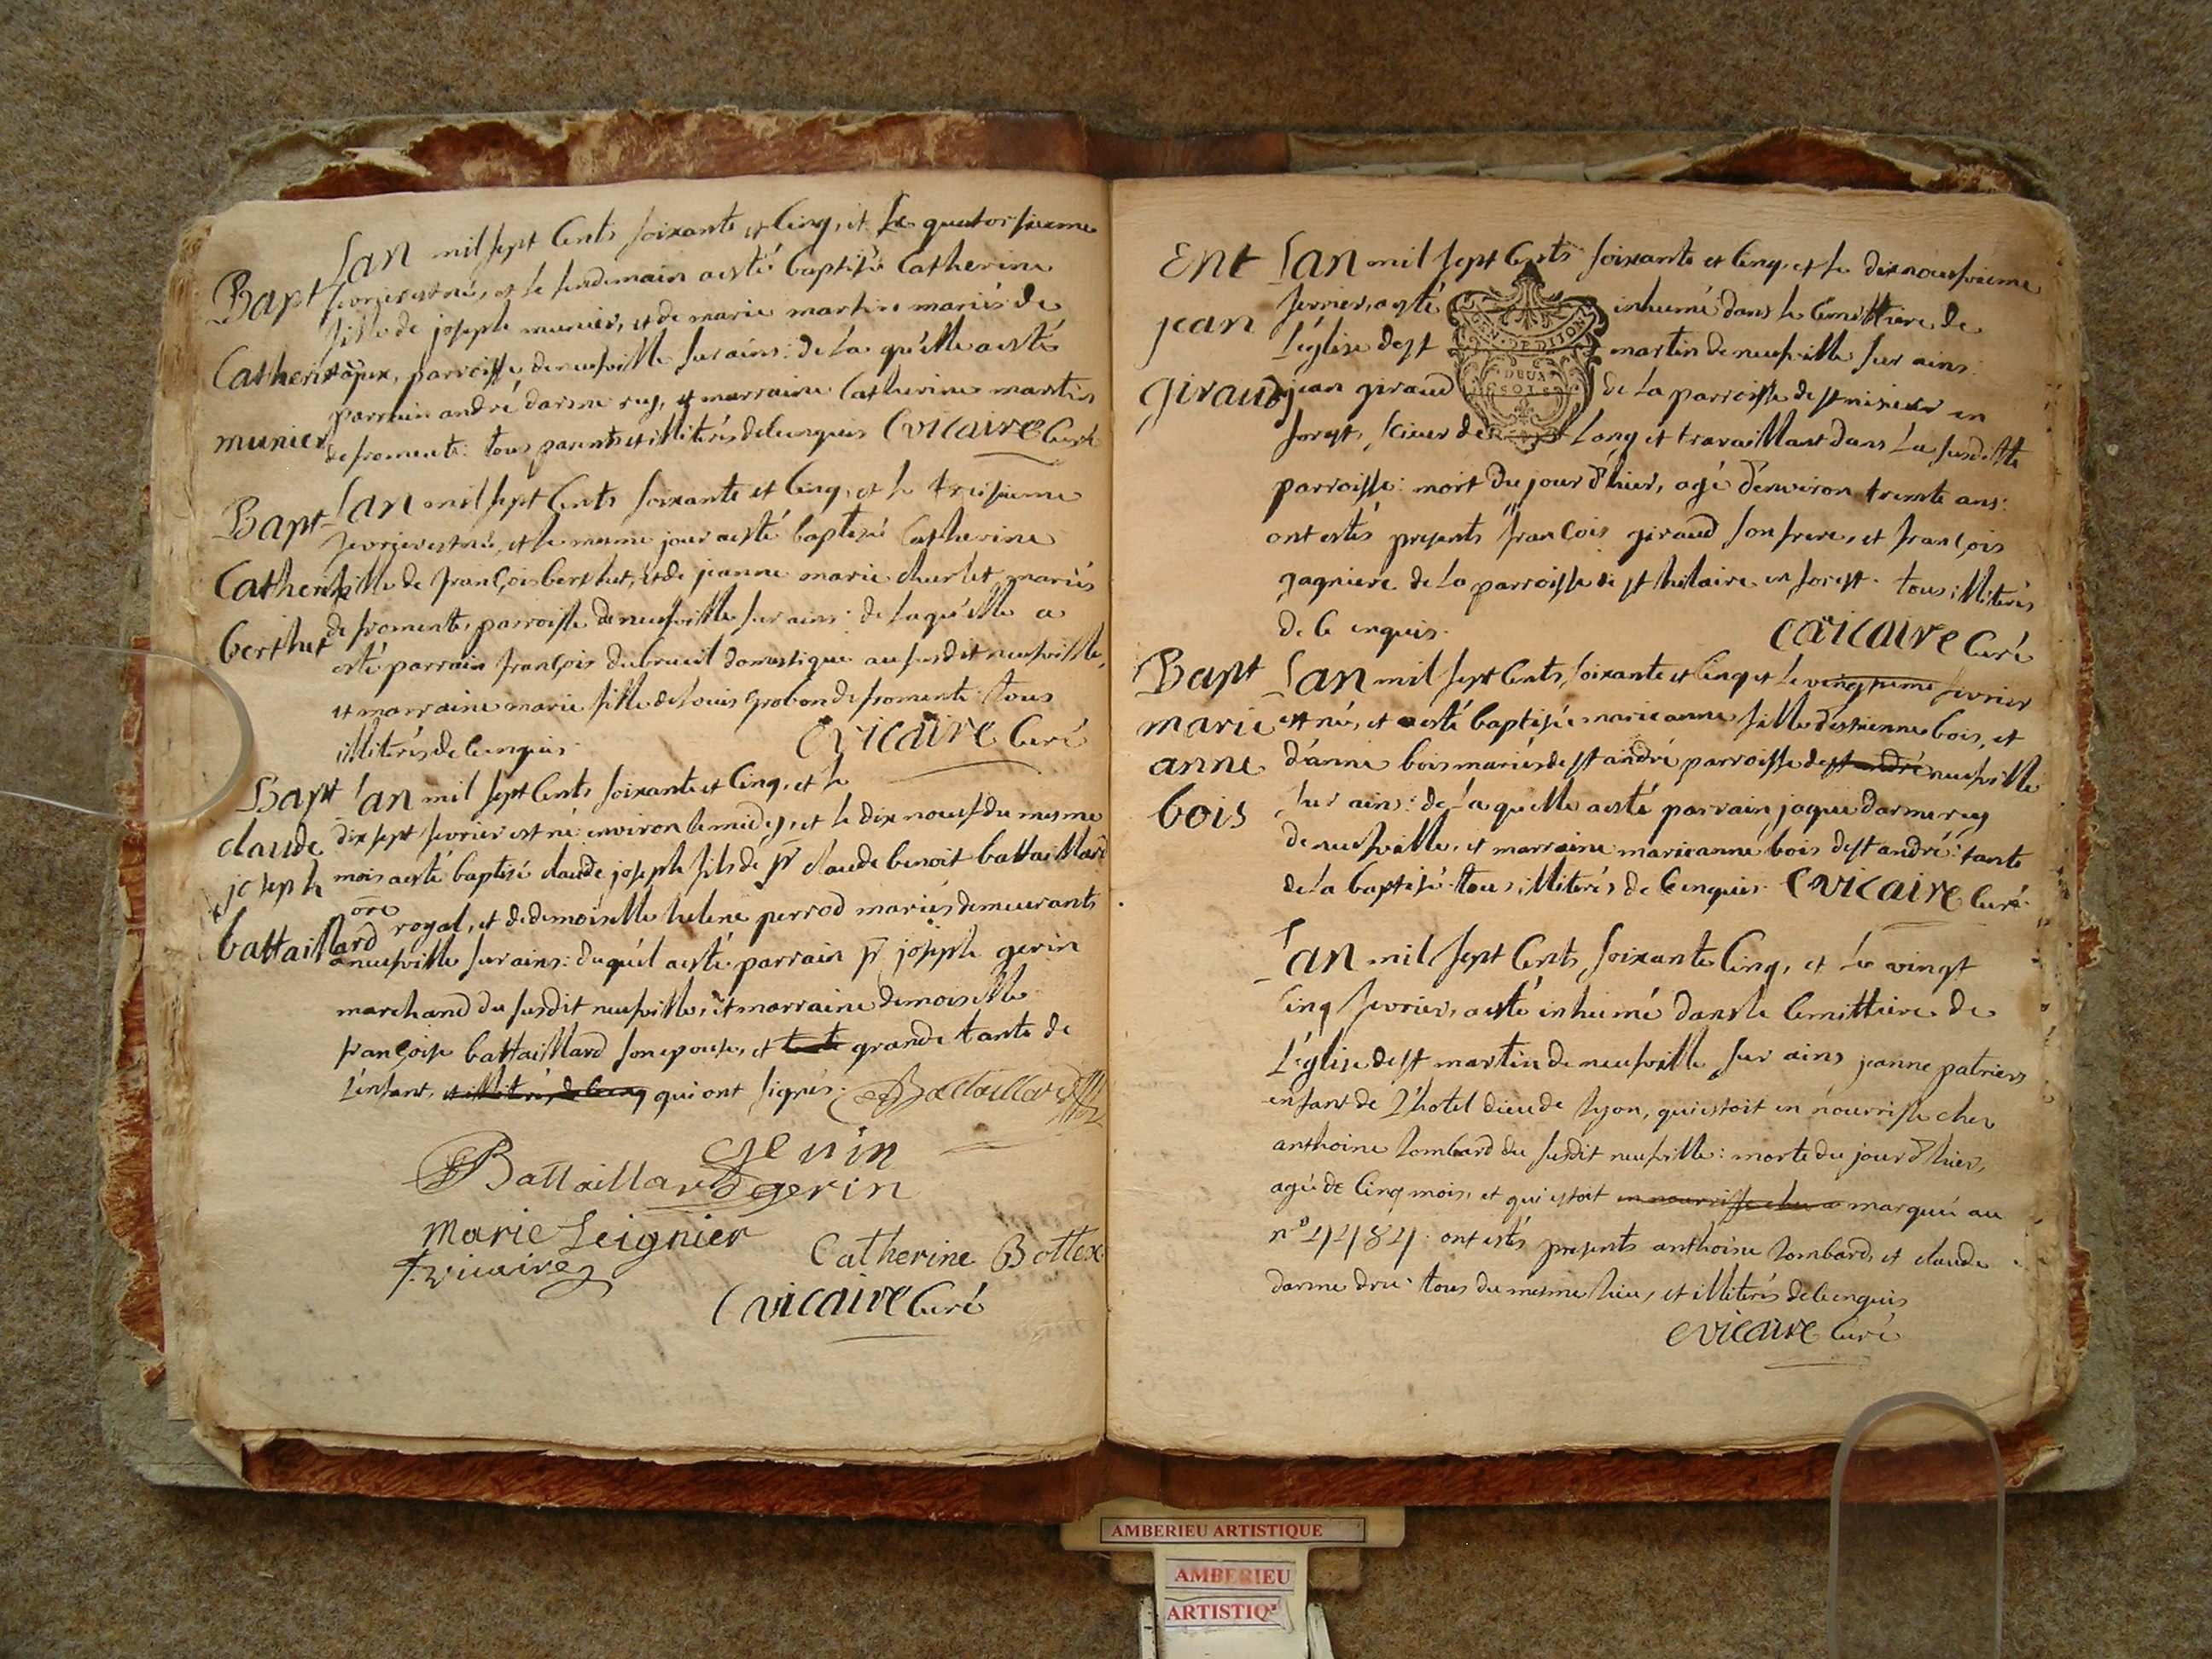 Lan mil sept Cents soixante et Cinq, et le quatorsieme
Bapt fevrier est née, et le lendemain a esté baptisée Catherine
fille de joseph munier, et de marie martin mariés de
Catherine parroisse de neufville sur ains: de la qu'elle a esté
parrain andré darme rey, et marraine Catherine martin
munier de fromente: tous parents et illiterés de Ce enquis Cvicaire Curé
Bapt Lan mil sept Cents soixante et Cinq, et le treisieme
fevrier est née, et le mesme jour a esté baptisée Catherine
Catherine fille de françois berthet, et de jeanne marie charlet mariés
berthet de fromente, parroisse de neufville sur ains: de laqu'elle a
esté parrain françois dubreuil domestique au susdit neufville,
et marraine marie fille de Louis grobon de fromente: tous
illiterés de Ce enquis. Cvicaire Curé
Bapt Lan mil sept Cents soixante et Cinq, et le
claude dix sept fevrier est né environ le midy, et le dix nouf du mesme
joseph mois a esté baptisé claude joseph fils de sr claude benoit battaillard
royal, et de demoiselle helene perrod mariés demeurants
battaillard a neufville sur ains: duquél a esté parrain sr joseph gerin
marchand du susdit neufville, et marraine demoiselle
françoise battaillard son epouse, et grande tante de
L'enfant, et illiterés de Ce enq qui ont signés. Battaillard
Genin
Battaillard gerin
Marie Leignier
Catherine Bottex
f. vicaire
Cvicaire Curé
Ent Lan mil sept Cents soixante et Cinq, et le dix nouf vieme
fevrier, a esté inhumé dans le Cemittiere de
jean L'église de st martin de neufville sur ains
GEN. DE DIJON
DEUX SOLS
giraud jean giraud de la parroisse de st en
forest, scieur de Long et travaillant dans La susditte
parroisse: mort du jour d'hier, agé d'environ trente ans:
ont estés presents françois giraud son frere, et françois
gagniere de la parroisse de st hilaire en forest. tous illiterés
de Ce enquis. Cvicaire Curé
Bapt Lan mil sept Cents soixante et Cinq et le fevrier
marie est née, et a esté baptisée marieanne fille d'estienne bois, et
anne d'anne bois mariés de st andré parroisse de st andré neufville
bois sur ains: de La quelle a esté parrain jaque darmerey
de neufville, et marraine marieanne bois de st andré: tante
de la baptisée. tous illiterés de Ce enquis. Cvicaire Curé
Lan mil sept Cents soixante Cinq, et Le vingt
Cinq fevrier, a esté inhumé dans le Cemittiere de
L'église de st martin de neufville sur ains jeanne patriers
enfant de L'hotel dieu de Lyon, qui estoit en nourrisse chez
anthoine Lombard du susdit neufville: morte du jour d'hier,
agée de Cinq mois, et qui estoit en nourrisse chez a marquée au
n° ont estés presents anthoine Lombard, et claude
darme dru: tous du mesme lieu, et illiterés de Ce enquis
Cvicaire Curé
AMBERIEU ARTISTIQUE
AMBERIEU
ARTISTIQ